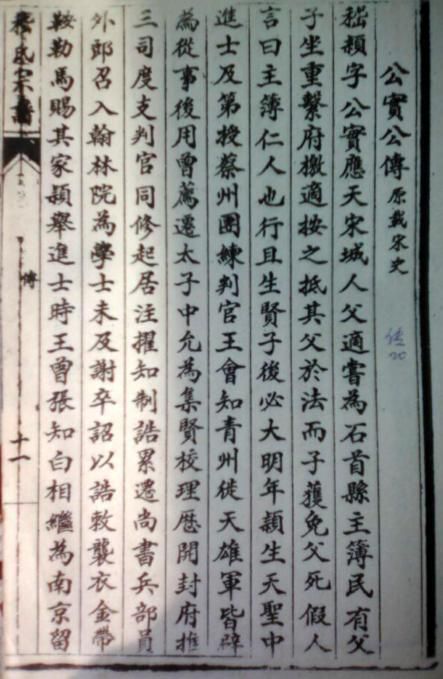 公實公傳 原載宋史
嵇頴字公實應天宋城人父適嘗為石首縣主簿民有父
子坐重繫府檄適按之抵其父於法而子獲免父死假人
言曰主簿仁人也行且生賢子後必大明年頴生天聖中
進士及第授蔡州團練判官王會知青州徙天雄軍皆辟
為從事後用曾薦遷太子中允為集賢校理歷開封府推
三司度支判官同修起居注擢知制誥累遷尚書兵部員
外郎召入翰林院為學士未及謝卒詔以誥敕襲衣金帶
鞍勒馬賜其家頴舉進士時王曾張知白相繼為南京留
嵇氏宗譜
傳
十一